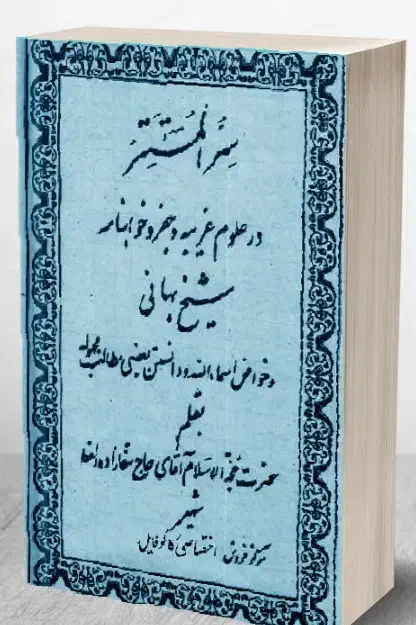 سر المستتر
در علوم غریبه و جفر و خوابنامه
شیخ بهائی
و خواص اسماء الله و دانستن بعضی مطالب مجهوله
بقلم
حضرت حجة الاسلام آقای حاج سقازاده واعظ
شهیر
مرکز فروش اختصاصی کافوفایل